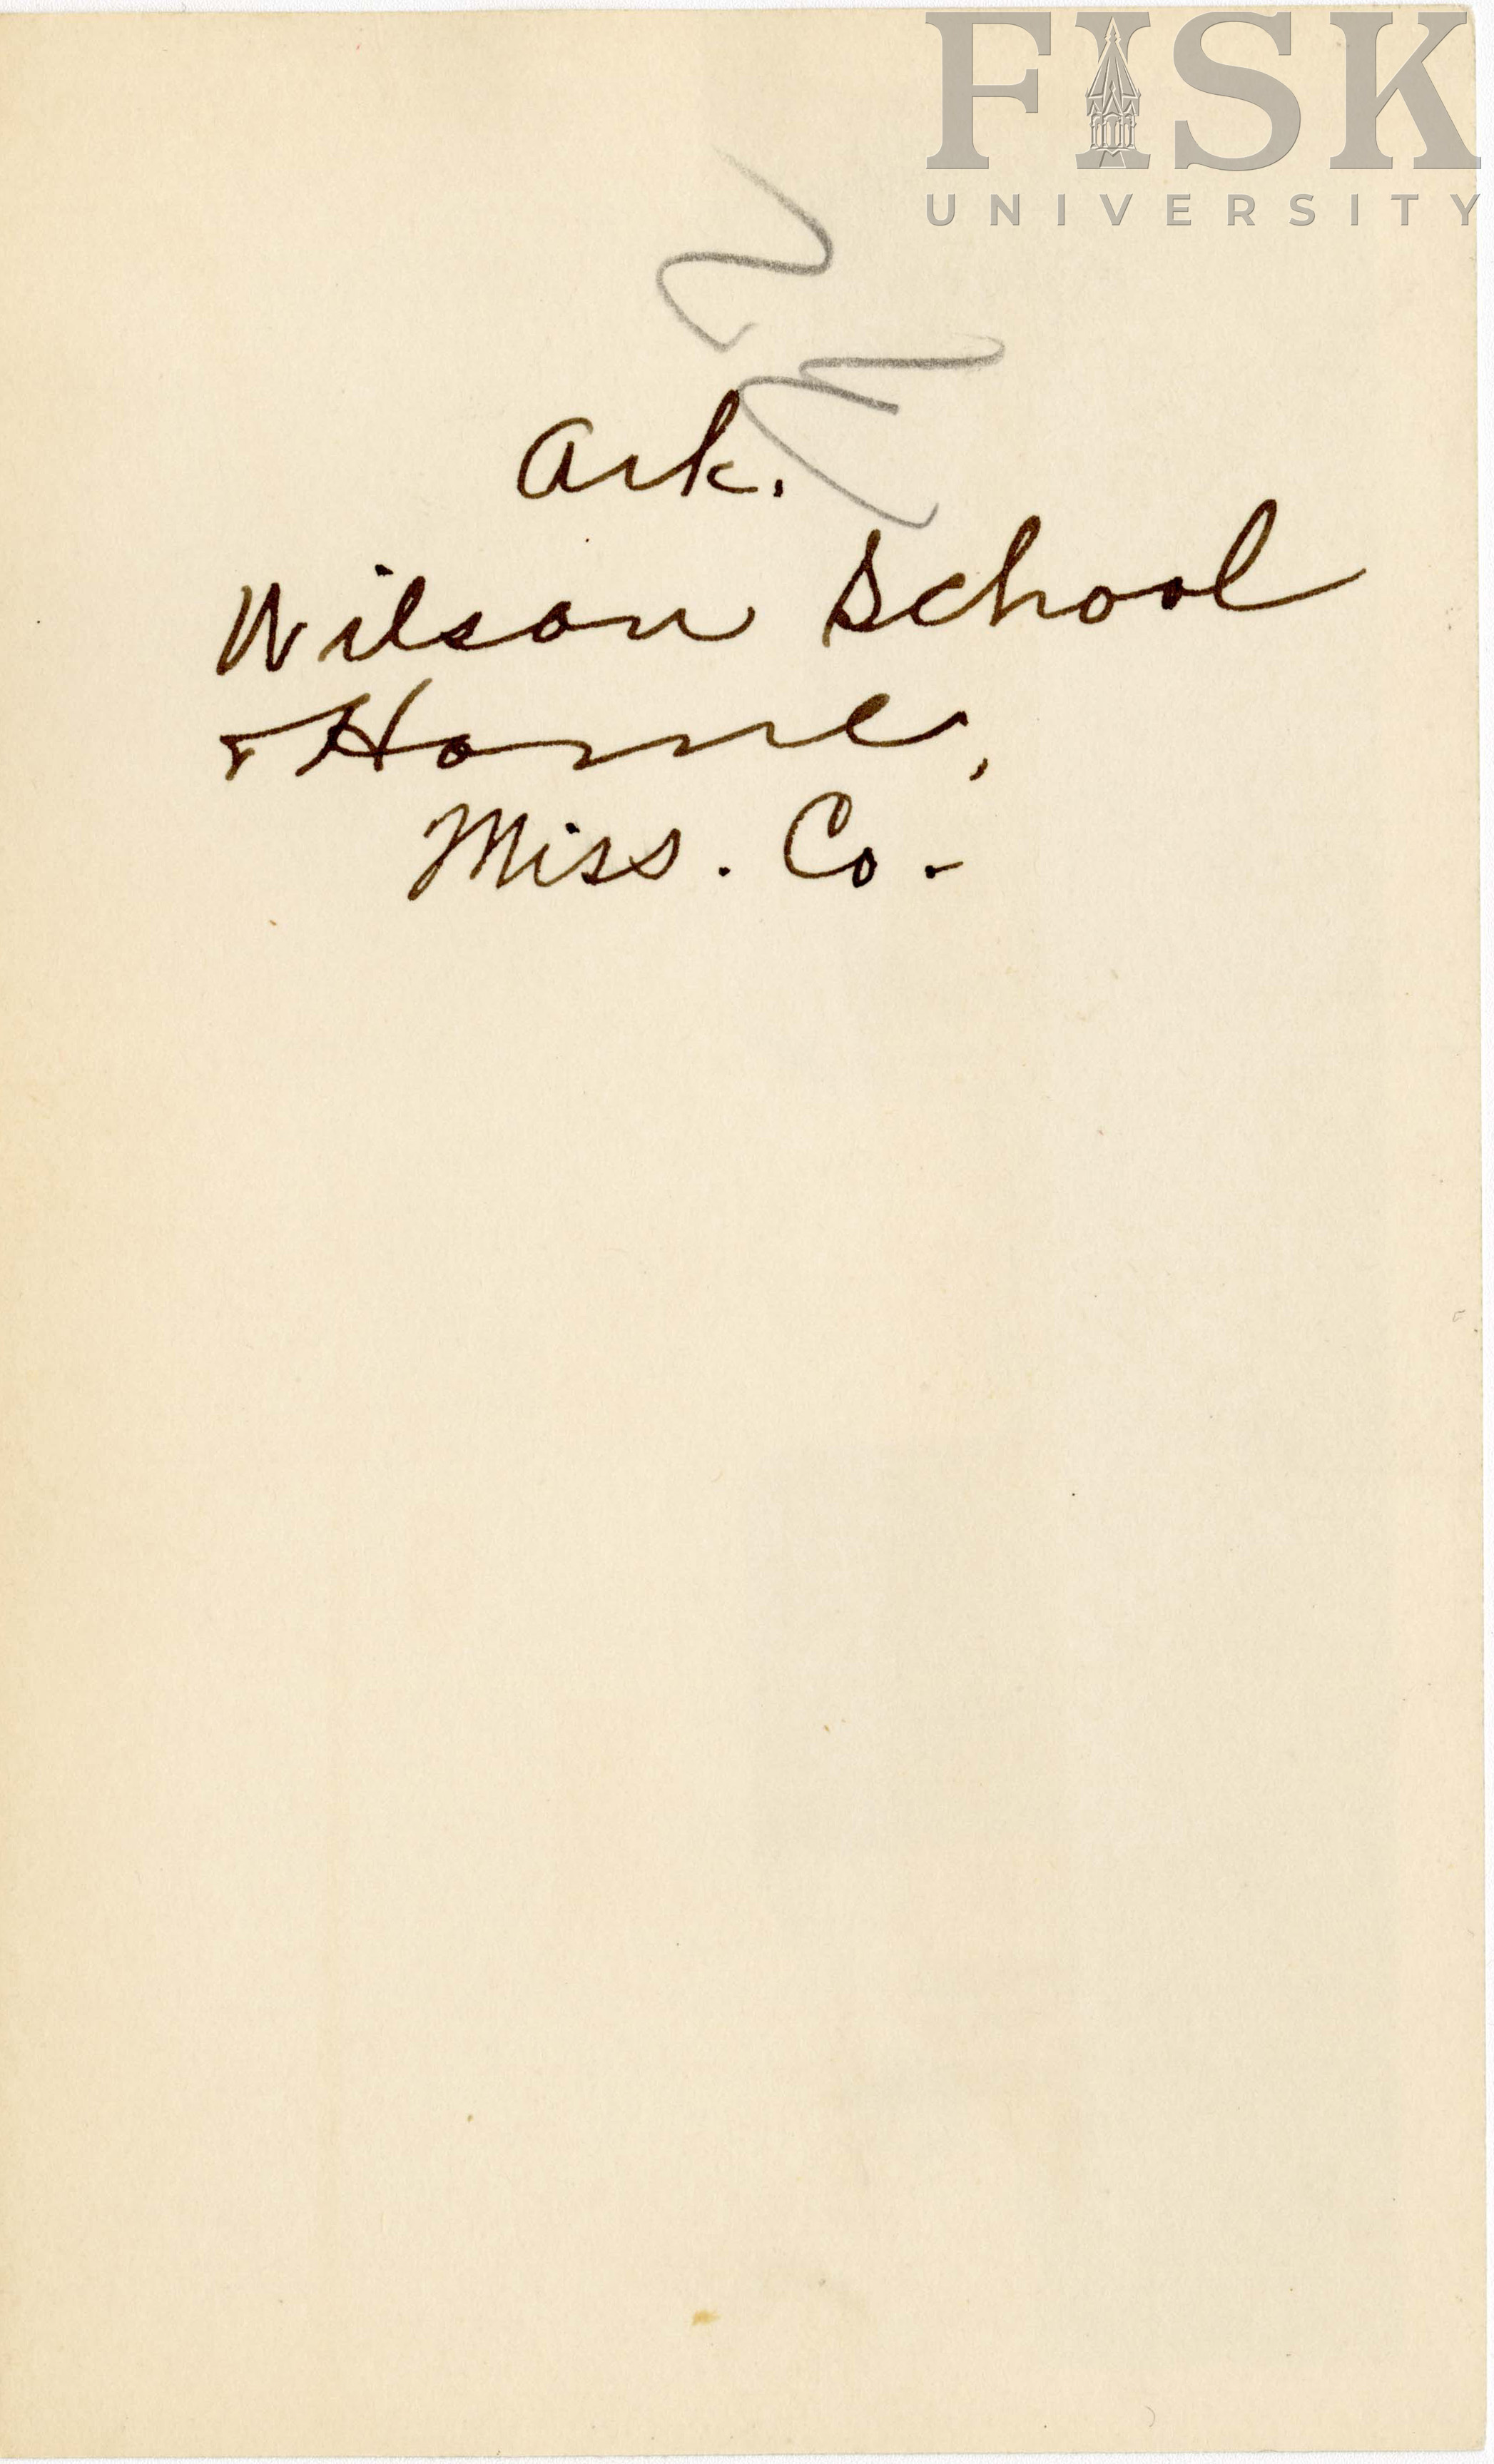 FISK
UNIVERSITY
Ark.
Wilson School
& Home,
Miss. Co.